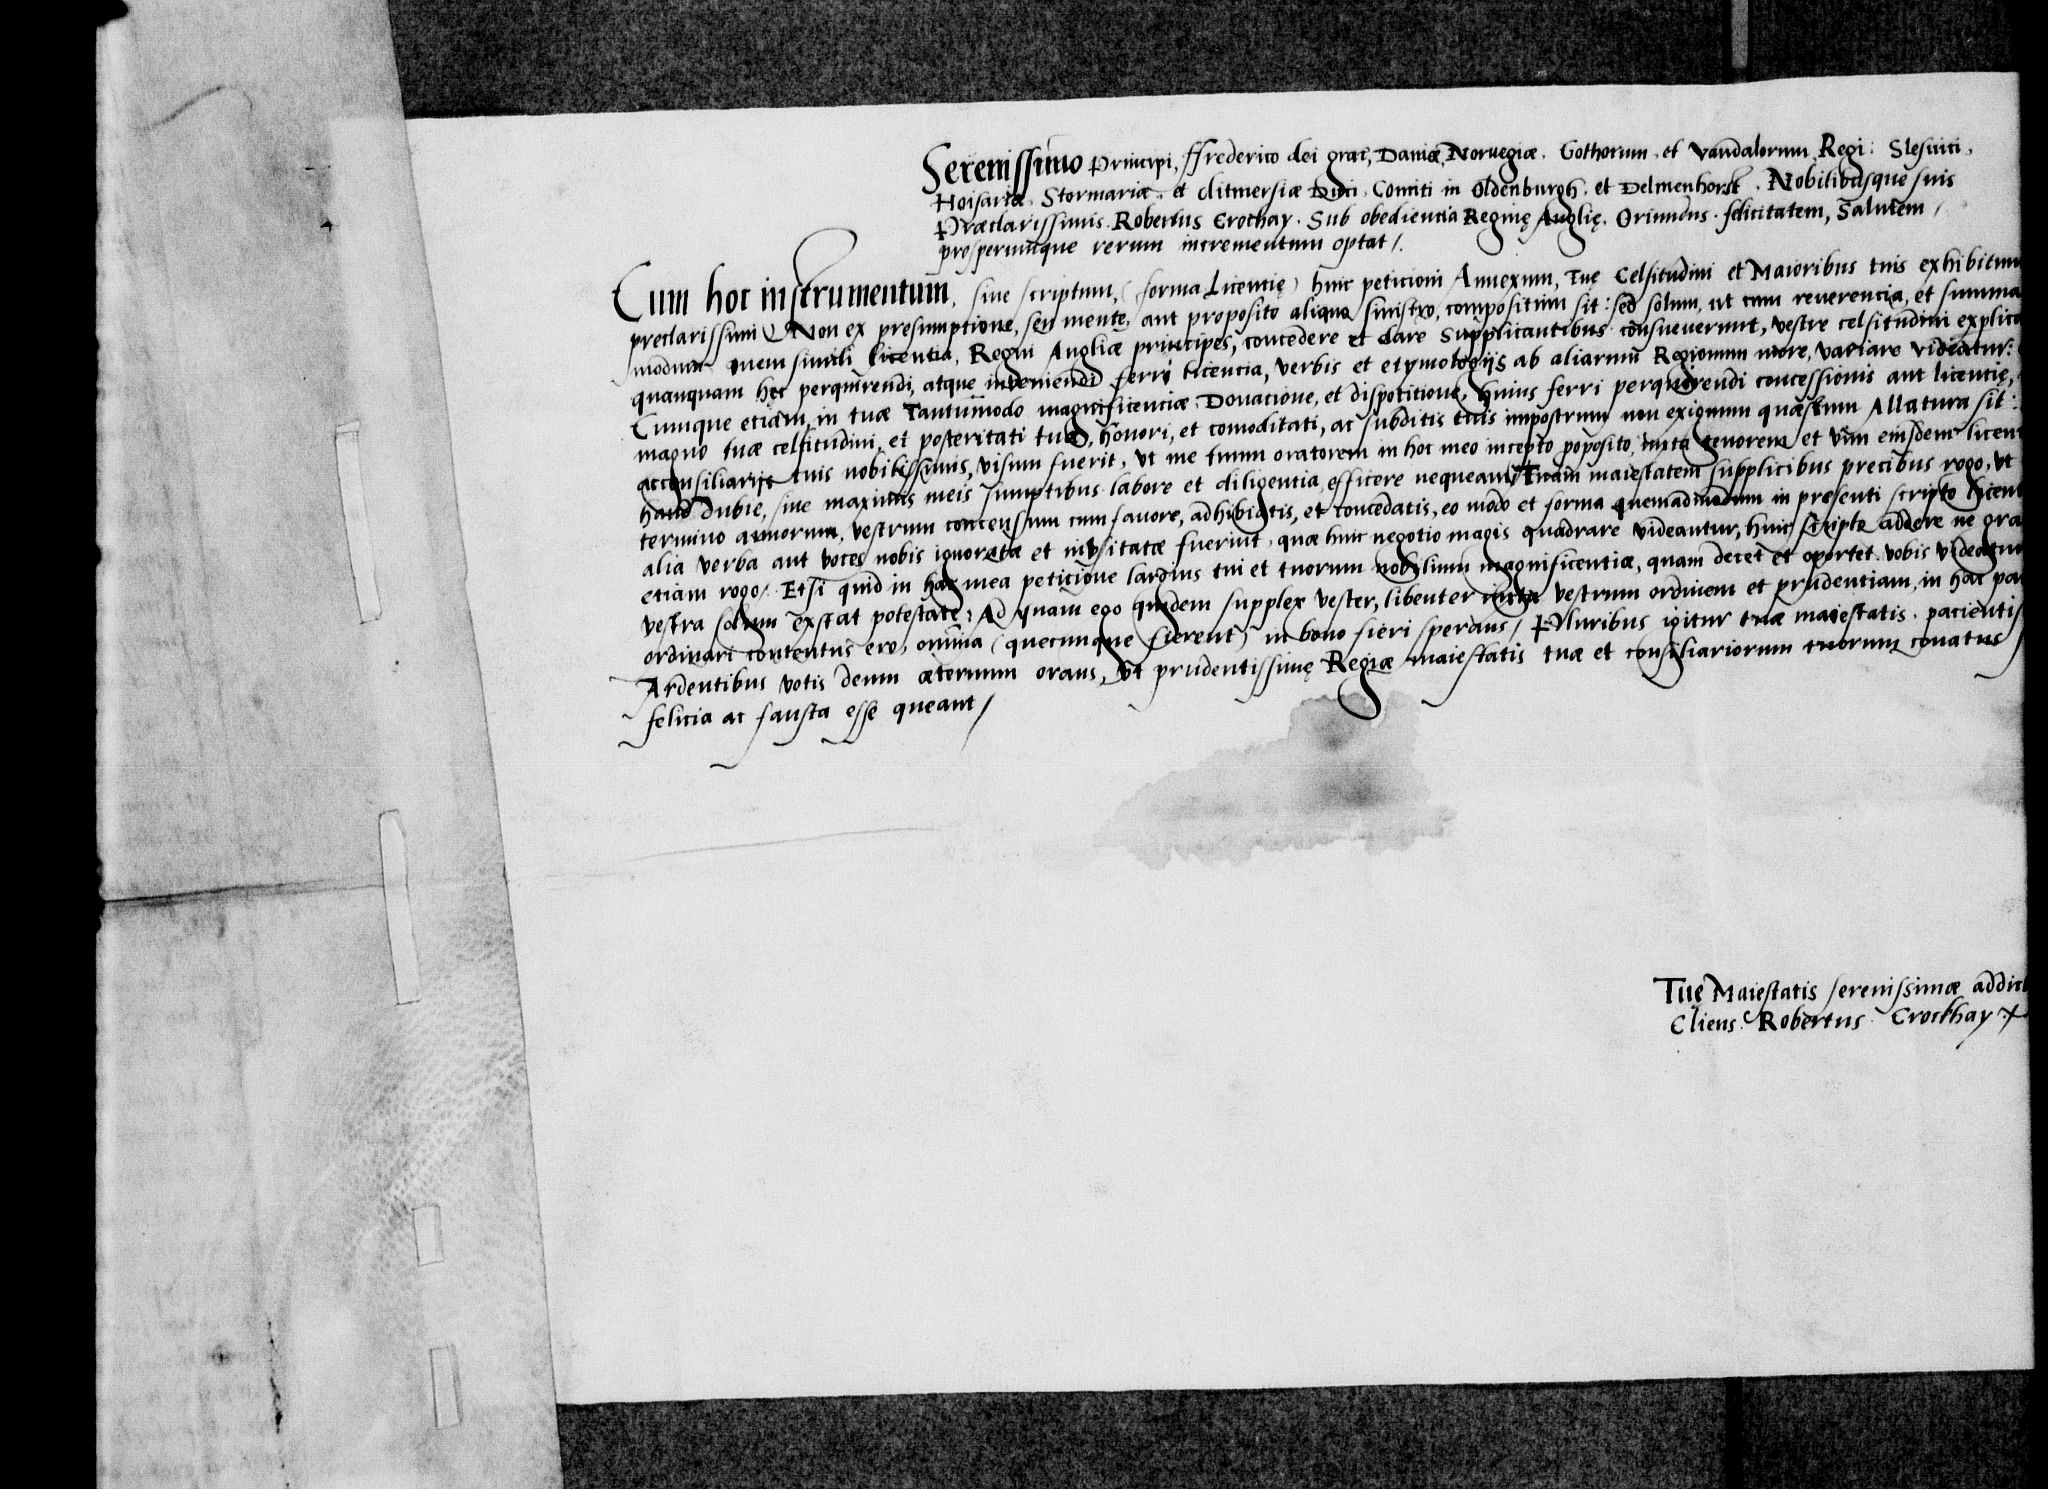 Serenissimo Principi, ffrederico dei grat, Daniæ, Noruegiæ. Gothorum. et Vandalorum Regi: Slesuici,
Hoisariæ. Stormariæ. et ditmersiæ Duci. Comiti in Oldenburgh. et Delmenhorst. Nobilibusque suis
Præclarissimis. Robertus Crochay. Sub obediencia Reginę Anglię. Oriundus. felicitatem, Salutem,
prosperumque rerum incrementum optat/.
Cum hoc instrumentum, siue scriptum, (forma Licentię) huic peticioni Annexum, Tuę Celsitudini et Maioribus tuis exhibitum
preclarissimi Non ex presumptione, seu mente, aut proposito aliquo sinistro, compositum sit: sed solum, ut cum reuerencia, et summa
modum quem simili licentia, Regni Angliæ principes, concedere et dare Supplicantibus consueuerunt, vestre celsitudini explico
quanquam hęc perquirendi, atque inveniendi ferri licencia, verbis et etymologijs ab aliarum Regionum more, variare videatur:
Cumque etiam, in tuæ Tantummodo magnificenciæ Donacione, et dispotitione, huius ferri perquirendi concessionis aut licentię,
magno tuæ celsitudini, et posteritati tuæ, honori, et comoditati, ac subditis tuis impostrum non exiguum quæstum Allatura sit:
acconsiliarijs tuis nobilissimis, visum fuerit, vt me tuum oratorem in hoc meo incepto poposito, iuxta tenorem et vim eiusdem licen
haud dubie, sine maximis meis sumptibus labore et diligentia, efficere nequeam, Tuam maiestatem supplicibus precibus rogo, vt
termino annorum, vestrum concensum cum fauore, adhibiatis, et concedatis, eo modo et forma quemadmodum in presenti scripto licen
alia verba aut voces nobis ignoratæ et inusitatæ fuerint, quæ huic negotio magis quadrare videantur, huic scripto addere ne gra
etiam rogo/. Etsi quid in hac mea peticione largius tui et tuorum nobilium magnificentiæ, quam decet et oportet vobis videatur
vestra solum exstat potestate, Ad quam ego quidem supplex vester, libenter iuxta vestrum ordinem et prudentiam, in hac pa
ordinari contentus ero, omnia (quecunque fierent) in bono fieri sperans/ Pluribus igitur tuæ maiestatis. pacientis
Ardentibus votis deum æternum orans, vt prudentissimę Regiæ maiestatis tuæ et consiliariorum tuorum conatus
felicia ac fausta esse queant/
Tuę Maiestatis serenissimæ addict
Cliens. Robertus. Crockhay